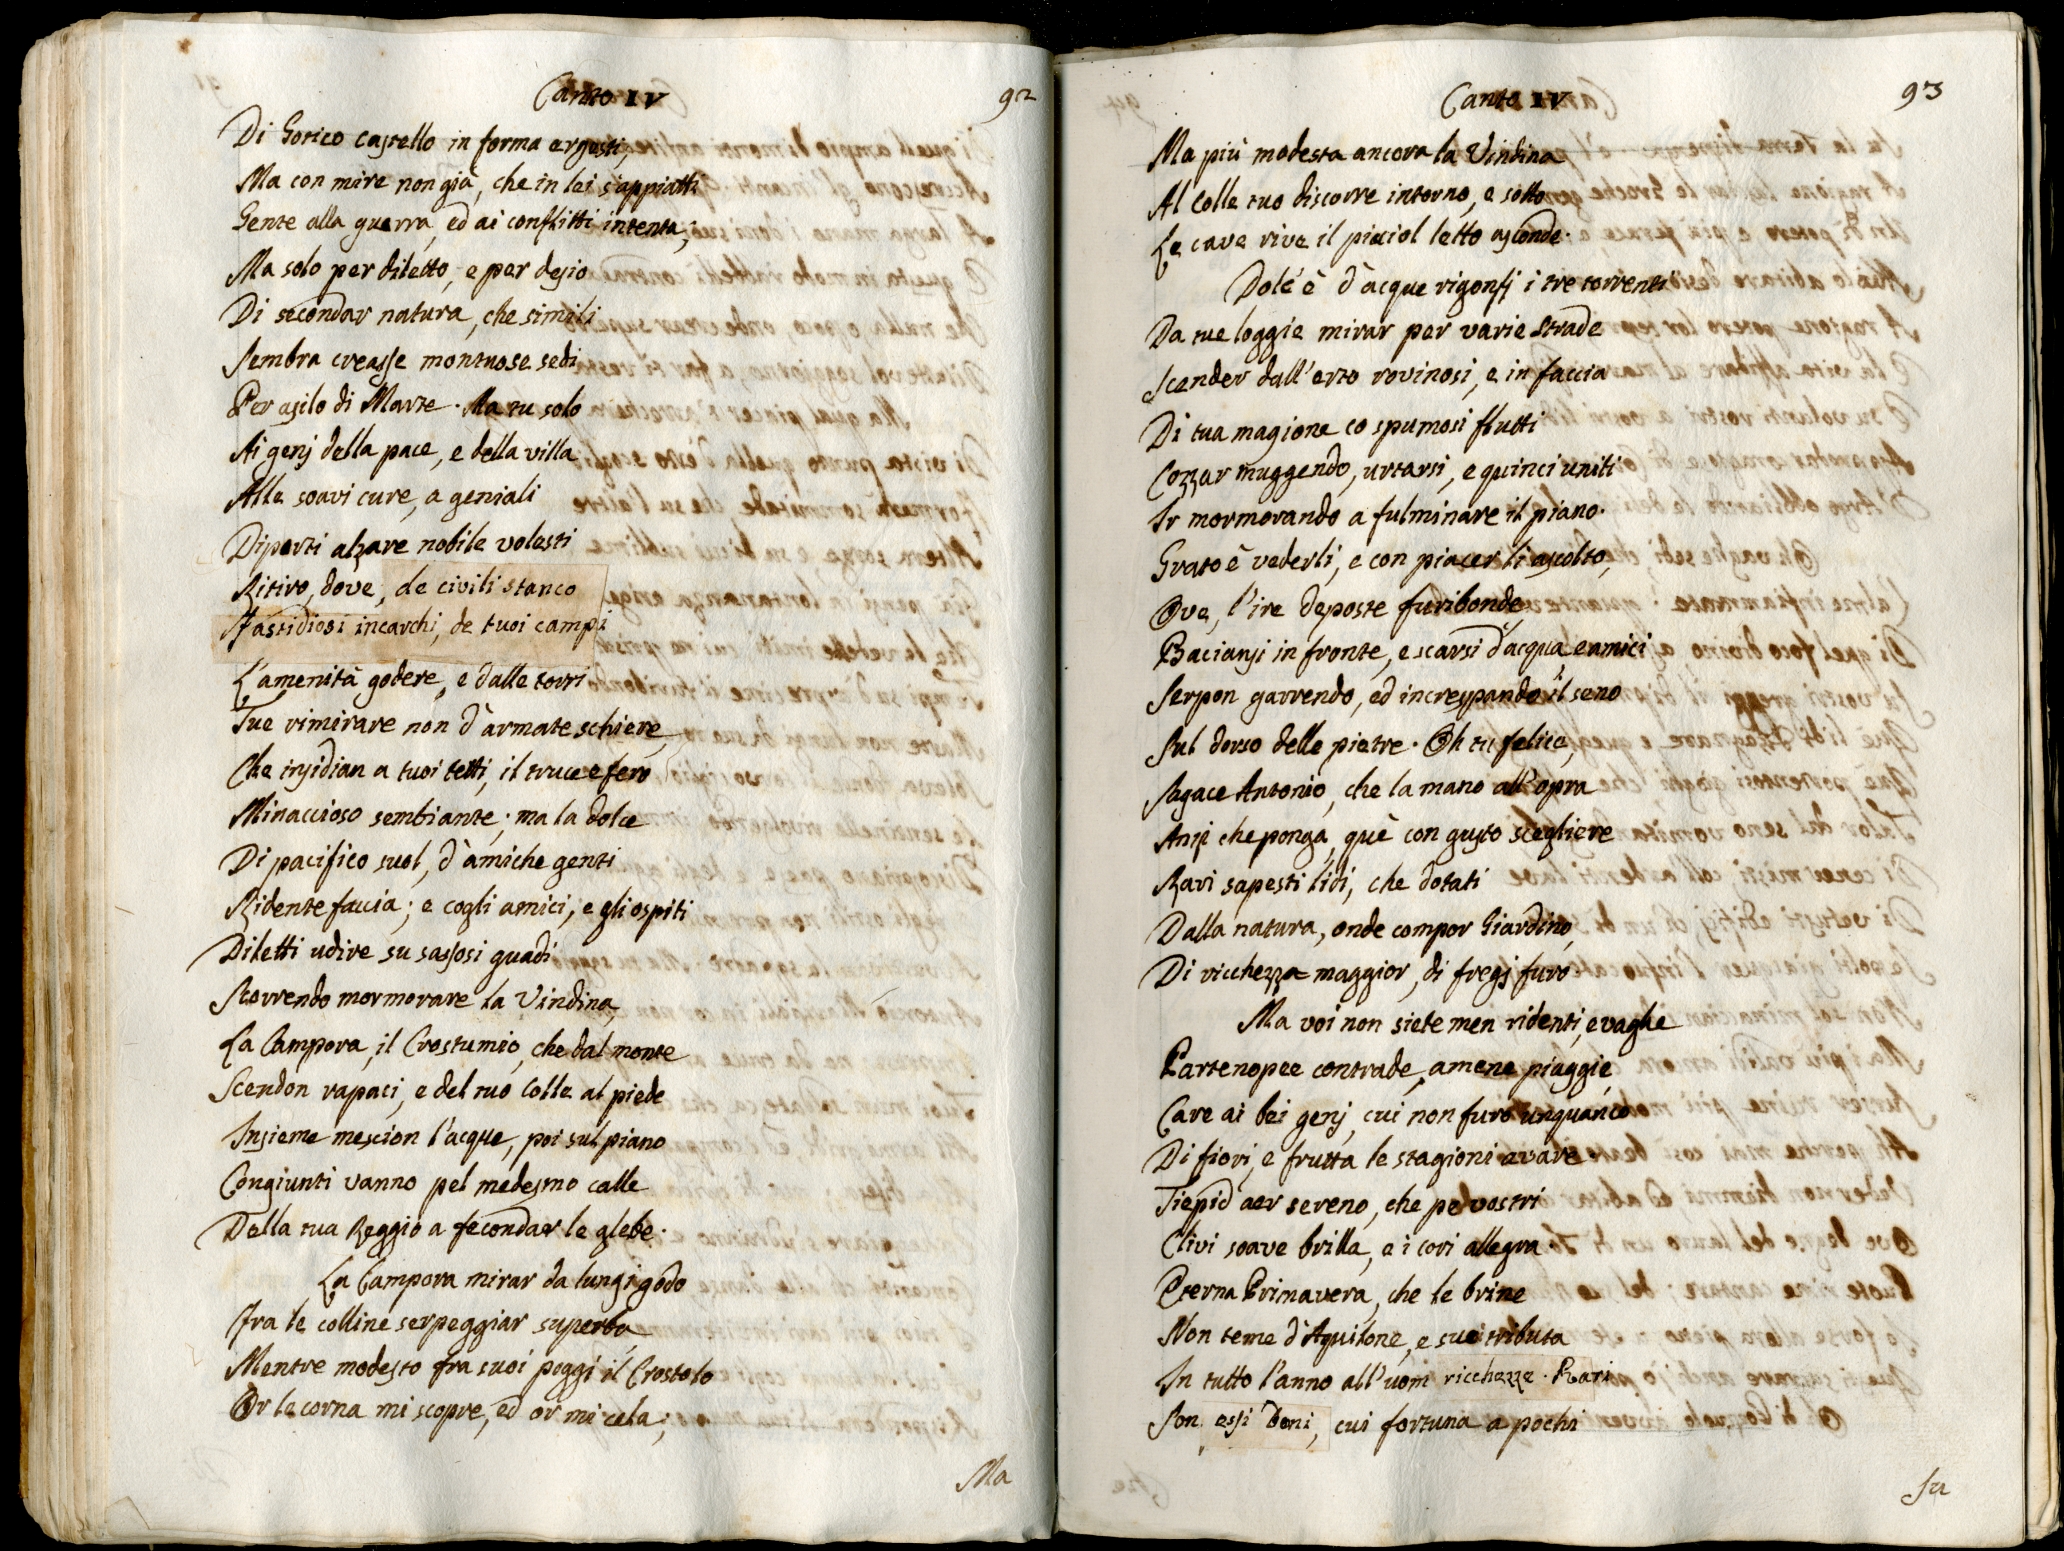 Canto IV
92
Di Gotico castello in forma ergesti,
Ma con mire non già, che in lei s'appiatti
Gente alla guerra, ed ai conflitti intenta;
Ma solo per diletto, e per desio
Di secondar natura, che simili
Sembra creasse montuose sedi
Per asilo di Marte. Ma tu solo
Ai genj della pace, e della villa
Alle soavi cure, a geniali
Diporti alzare nobile volesti
Ritiro, dove, de civili stanco
Fastidiosi incarchi, de tuoi campi
L'amenità godere, e dalle torri
Tue rimirare non d'armate schiere,
Che insidian a tuoi tetti, il truce e fero
Minaccioso sembiante; ma la dolce
Di pacifico suol, d'amiche genti
Ridente faccia; e cogli amici, e gli ospiti
Diletti udire su sassosi guadi
Scorrendo mormorare la Vindina,
La Campora, il Crostumio, che dal monte
Scendon rapaci, e del tuo Colle al piede
Insieme mescion l'acque, poi sul piano
Congiunti vanno pel medesmo calle
Della tua Reggio a fecondar le glebe.
La Campora mirar da lungi godo
Fra le colline serpeggiar superba,
Mentre modesto fra suoi poggi il Crostolo
Or le corna mi scopre, ed or mi cela;
Ma
Canto IV
93
Ma più modesta ancora la Vindina
Al Colle tuo discorre intorno, e sotto
Le cave rive il picciol letto asconde.
Dolc'è d'acque rigonfj i tre torrenti
Da tue loggie mirar per varie strade
Scender dall'erto rovinosi, e in faccia
Di tua magione co spumosi flutti
Cozzar muggendo, urtarsi, e quinci uniti
Ir mormorando a fulminare il piano.
Grato è vederli, e con piacer li ascolto,
Ove, l'ire deposte furibonde,
Baciansi in fronte, e scarsi d'acqua, e amici
Serpon garrendo, ed increspando il seno
Sul dorso delle pietre. Oh tu felice,
Sagace Antonio, che la mano all'opra
Anzi che ponga, què con gusto scegliere
Rari sapesti lidi, che dotati
Dalla natura, onde compor Giardino,
Di ricchezza maggior, di fregj furo.
Ma voi non siete men ridenti, e vaghe
Partenopee contrade, amene piaggie,
Care ai bei genj, cui non furo unquanco
Di fiori, e frutta le stagioni avare
Tiepid aer sereno, che pe vostri
Clivi soave brilla, e i cori allegra.
Eterna Primavera, che le brine
Non teme d'Aquilone, e sue tributa
In tutto l'anno all'uom ricchezze. Rari
Son essi doni, cui fortuna a pochi
Su